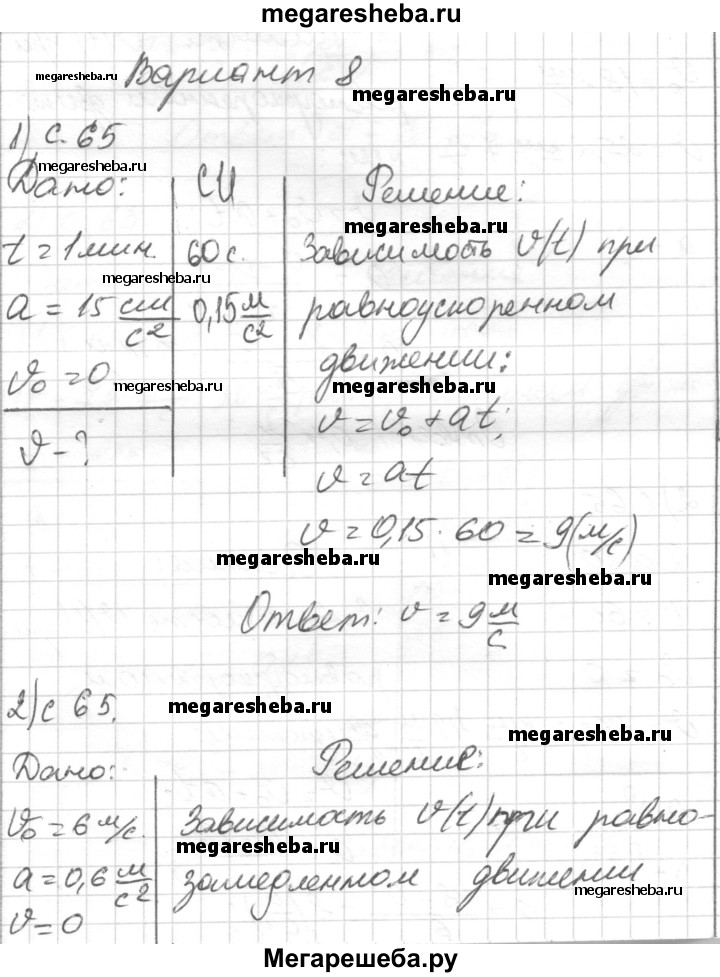 megaresheba.ru
megaresheba.ru Вариант 8
megaresheba.ru
1) с. 65
megaresheba.ru
Дано: СИ Решение:
megaresheba.ru
t = 1 мин. 60 с. Зависимость v(t) при
megaresheba.ru
a = 15 см/с² 0,15 м/с² равноускоренном
движении:
v₀ = 0 megaresheba.ru megaresheba.ru
v = v₀ + at;
v - ?
v = at
v = 0,15 · 60 = 9 (м/с)
megaresheba.ru megaresheba.ru
Ответ: v = 9 м/с
2) с 65. megaresheba.ru
megaresheba.ru
Дано: Решение:
v₀ = 6 м/с. Зависимость v(t) при равно-
megaresheba.ru
a = 0,6 м/с² замедленном движении
megaresheba.ru
v = 0
Мегарешеба.ру